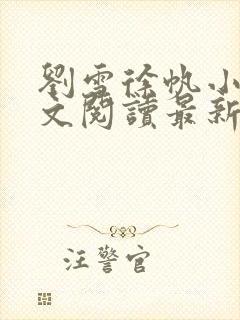 劉雪徐帆小
文閱讀最新
汪警官